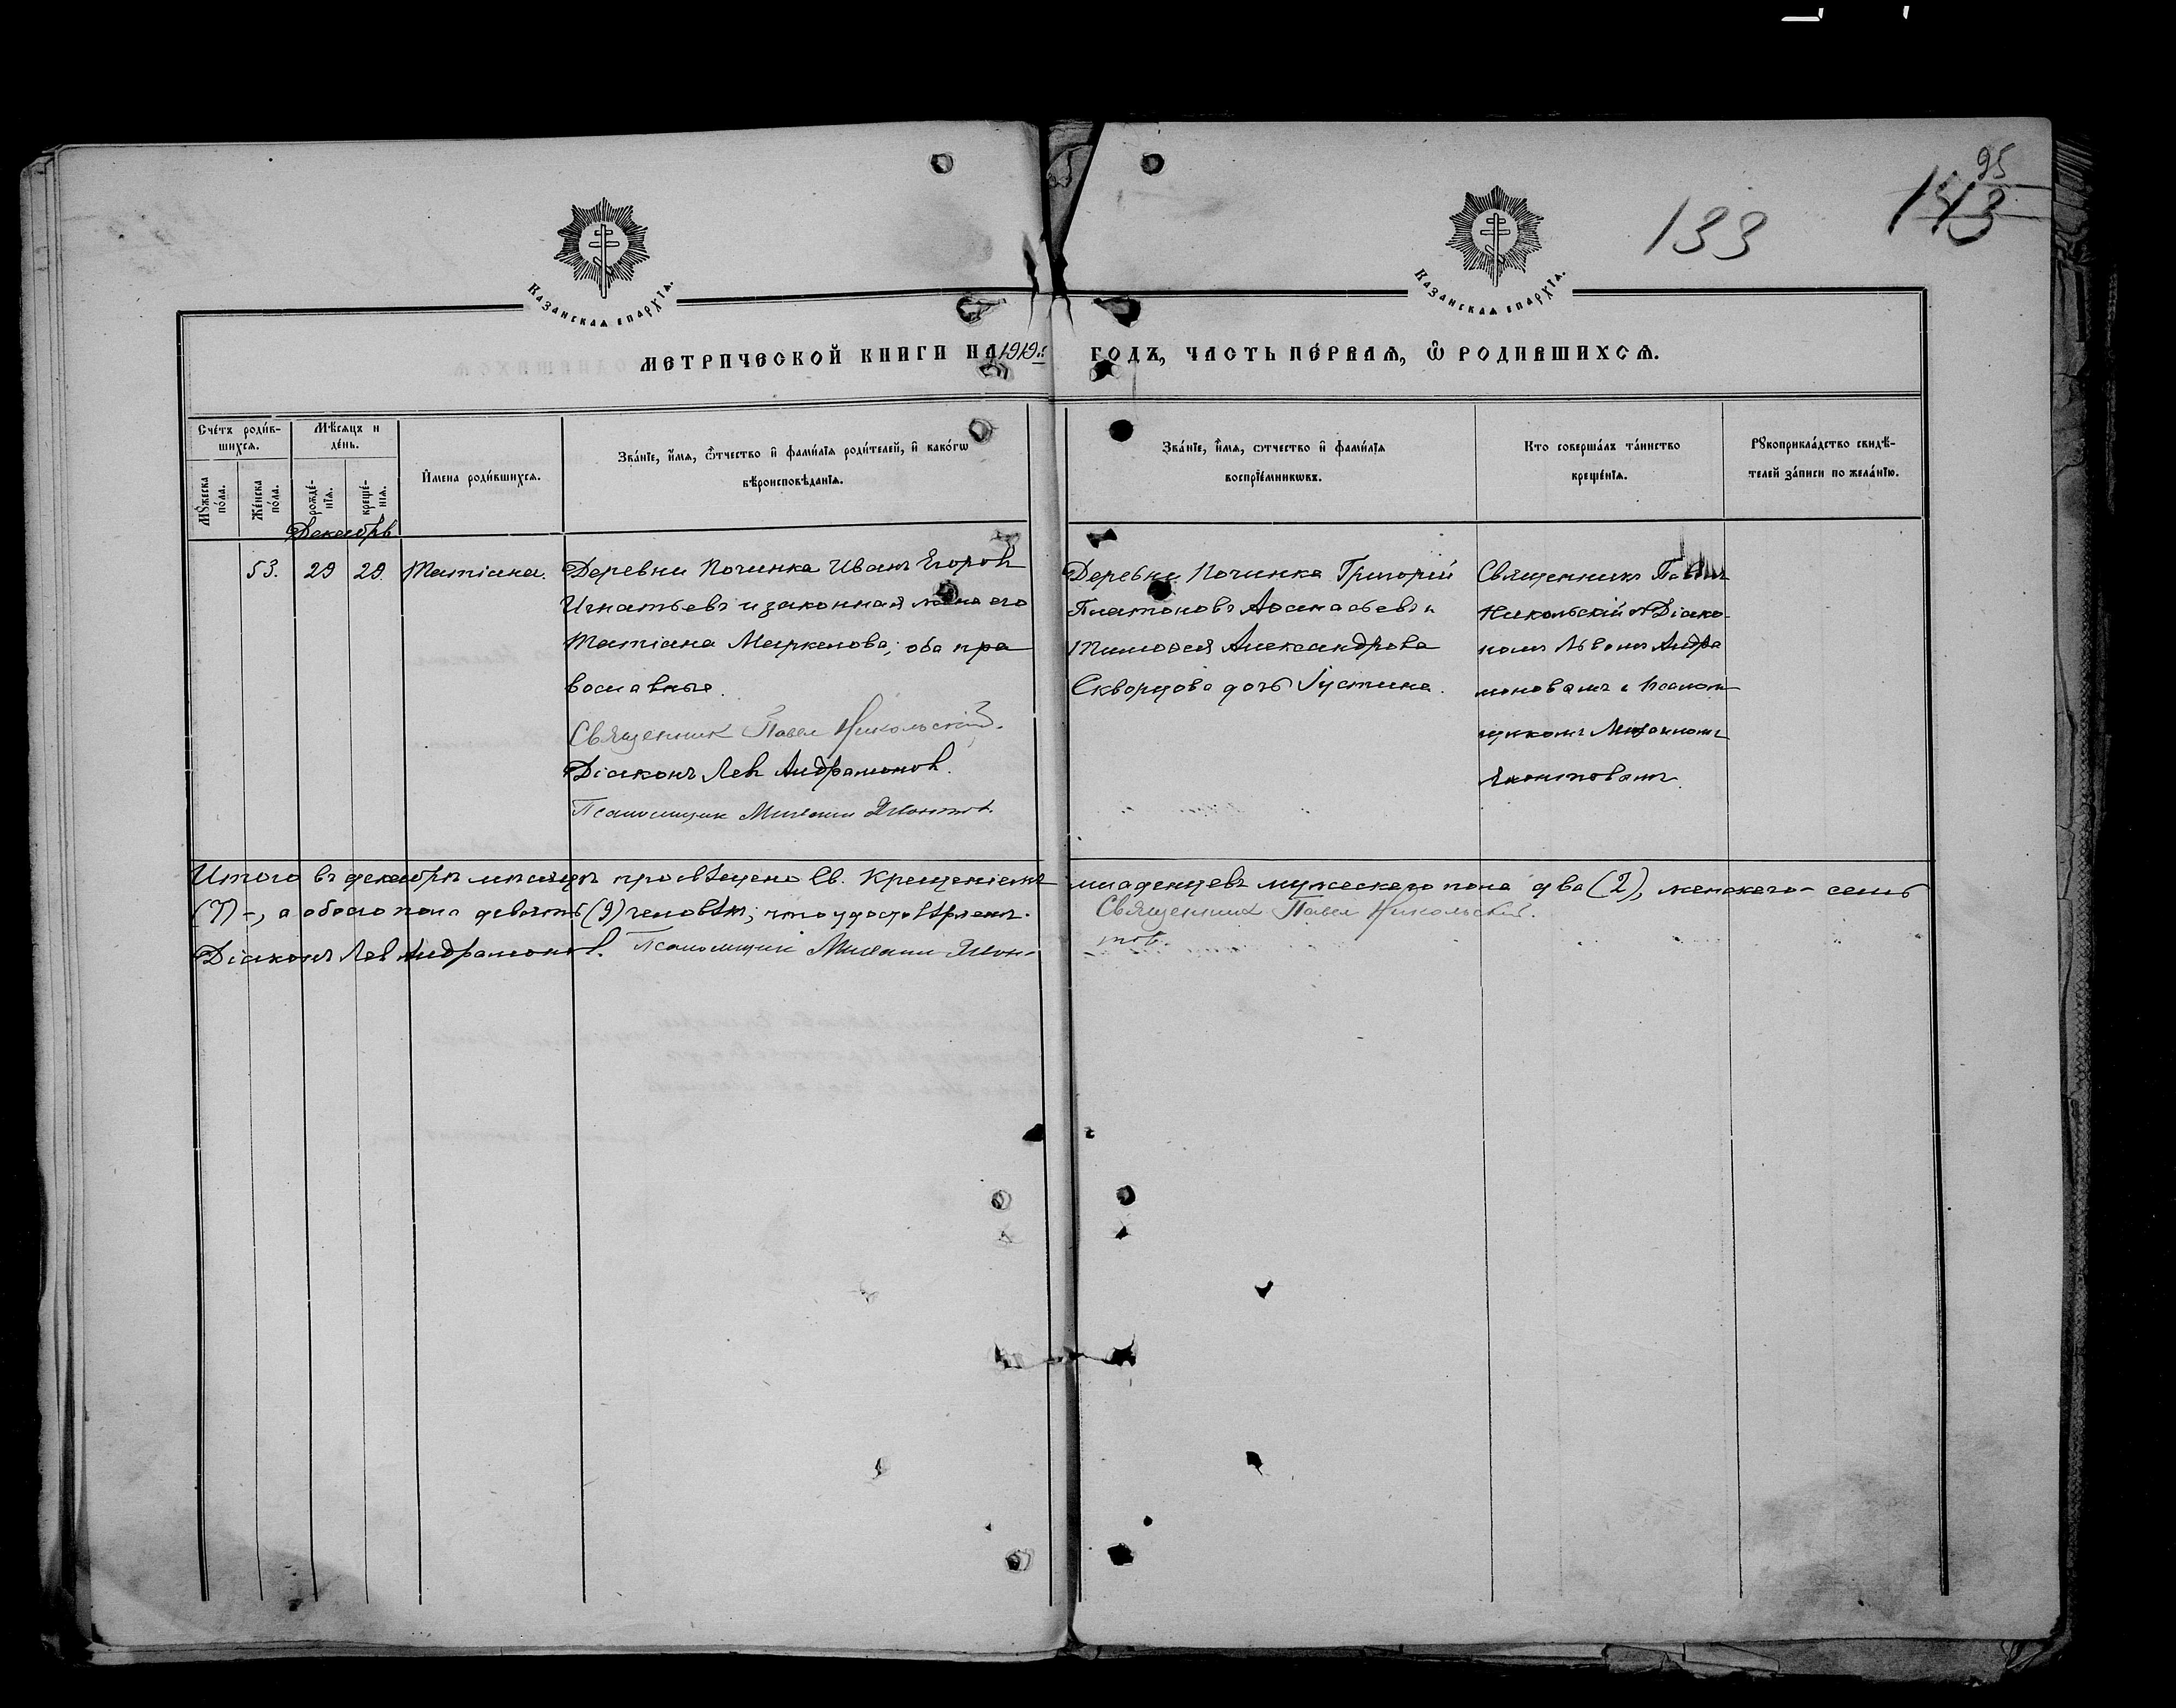 95
143
133
Казанская епархїѧ.
Казанская епархїѧ.
МЕТРИЧЕСКОЙ КНИГИ НА 1919 г. ГОДЪ, ЧАСТЬ ПЕ́РВАѦ, Ѽ РОДИВШИХСѦ.
Сче́тъ роди́в-
шихсѧ.
Мѣ́сѧцъ и
де́нь.
Мꙋ́жеска
по́ла.
Же́нска
по́ла.
рожде́-
нїѧ.
креще́-
нїѧ.
И҆мена роди́вшихсѧ.
Зва́нїе, и҆́мѧ, ѻ҆́тчество и҆ фами́лїѧ роди́телей, и҆ како́гѡ
вѣроисповѣ́данїѧ.
Зва́нїе, и҆́мѧ, ѻтчество и҆ фами́лїѧ
воспрїе́мникѡвъ.
Кто соверша́лъ та́инство
креще́нїѧ.
Рꙋкоприкла́дство свидѣ́-
телей за́писи по жела́нїю.
Декабрь
53. 29 29. Татіана.
Деревни Починка Иванъ Егоров
Игнатьевъ и законная жена его
Татіана Маркелова; оба пра
вославные.
Священник Павел Никольскій.
Діаконъ Лев Андрамонов.
Псаломщик Михаил
Деревни Починка Григорій
Платоновъ Аѳанасьевъ и
Тимоѳея Александрова
Скворцова дочь Іустина.
Священникъ Павелъ
Никольскій с Діако-
номъ Львомъ Андра
моновымъ и Псалом
щикомъ Михаиломъ
Итого въ декабрѣ мѣсяцѣ просвѣщено Св. Крещеніемъ младенцевъ мужеского пола два (2), женского - семь
(7) -, а обоего пола девять (9) человѣкъ; что удостовѣряемъ. Священник Павел Никольскій.
Діаконъ Лев Андрамонов. Псаломщик Михаил
тов.